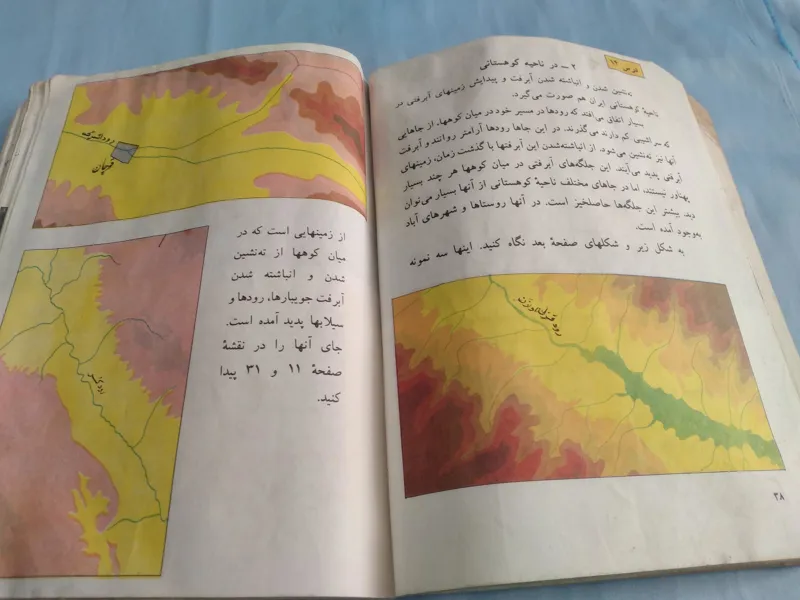 درس ۱۴
۲ – در ناحیهٔ کوهستانی
ته‌نشین شدن و انباشته شدن آبرفت و پیدایش زمینهای آبرفتی در
ناحیهٔ کوهستانی ایران هم صورت می‌گیرد.
بسیار اتفاق می‌افتد که رودها در مسیر خود در میان کوهها، از جاهایی
که سراشیبی کم دارند می‌گذرند. در این جاها رودها آرامتر روانند و آبرفت
آنها نیز ته‌نشین می‌شود. از انباشته‌شدن این آبرفتها با گذشت زمان، زمینهای
آبرفتی پدید می‌آیند. این جلگه‌های آبرفتی در میان کوهها هر چند بسیار
پهناور نیستند، اما در جاهای مختلف ناحیهٔ کوهستانی از آنها بسیار می‌توان
دید. بیشتر این جلگه‌ها حاصلخیز است. در آنها روستاها و شهرهای آباد
بوجود آمده است.
به شکل زیر و شکلهای صفحهٔ بعد نگاه کنید. اینها سه نمونه
رود قزل‌اوزن
۳۸
رود اترک
قوچان
از زمینهایی است که در
میان کوهها از ته‌نشین
شدن و انباشته شدن
آبرفت جویبارها، رودها و
سیلابها پدید آمده است.
جای آنها را در نقشهٔ
صفحهٔ ۱۱ و ۳۱ پیدا
کنید.
رود